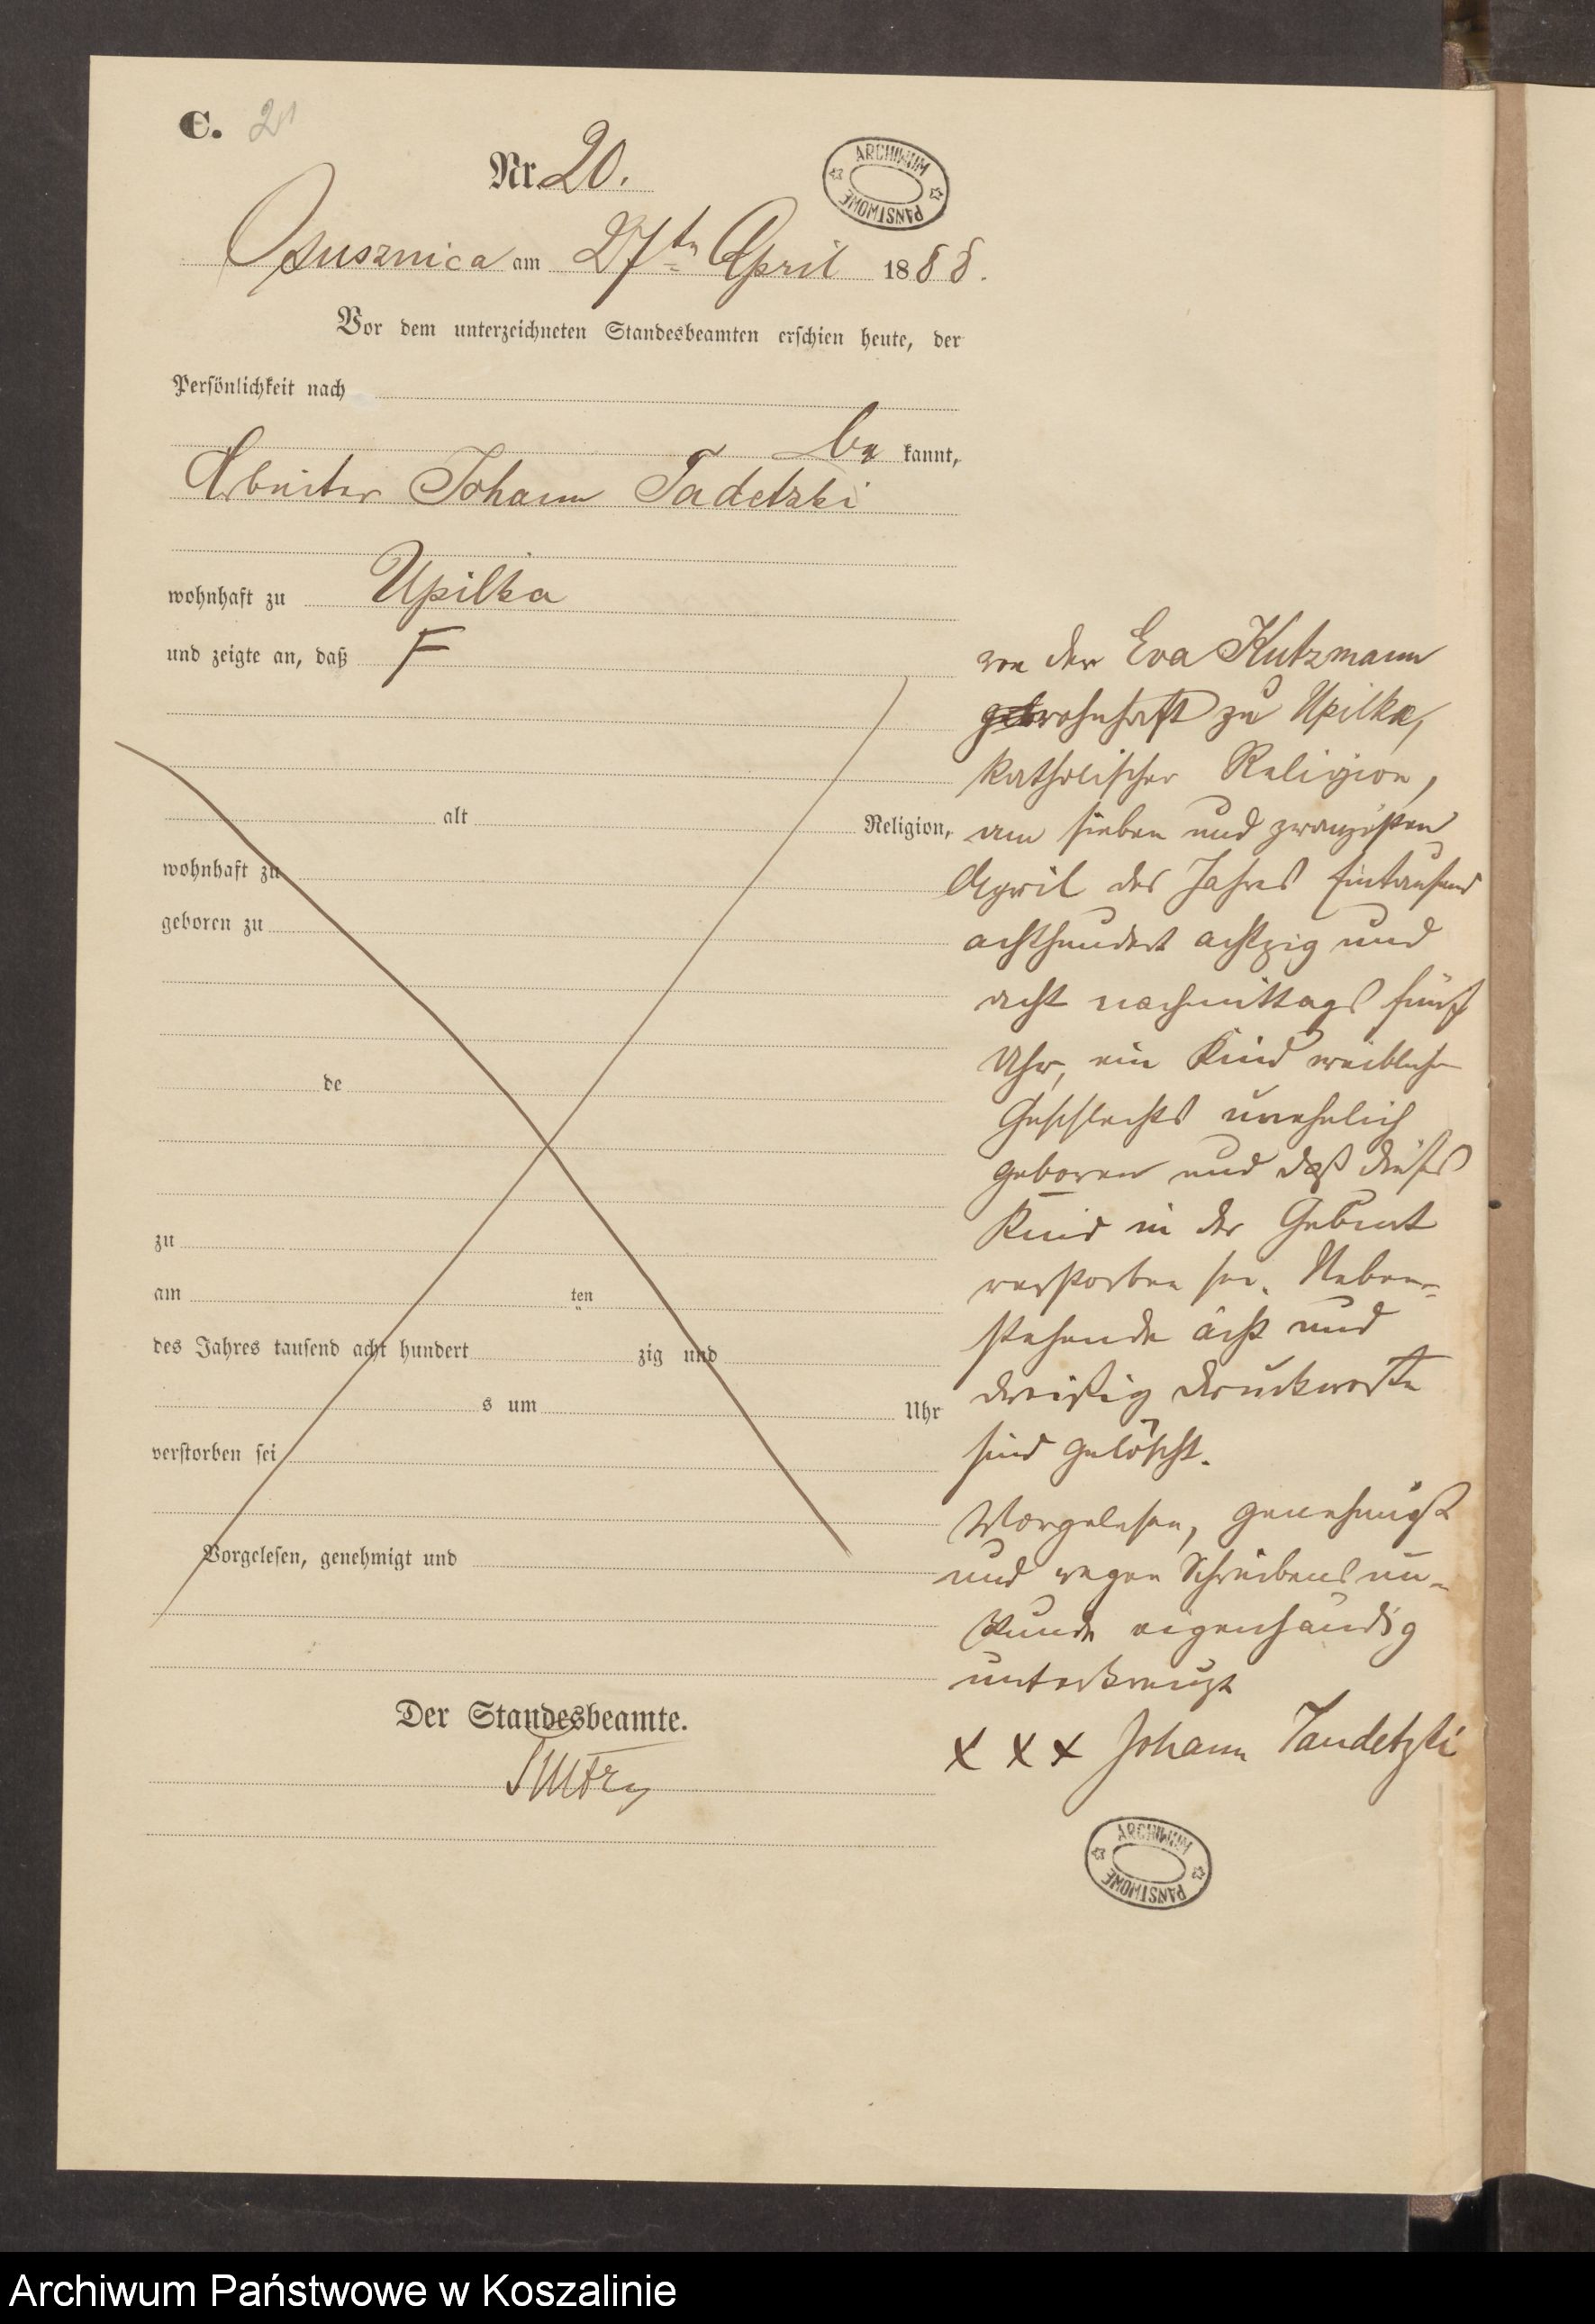 C. 20
Nr. 20.
ARCHIWUM PAŃSTWOWE
Ossusznica am 27ten April 1888.
Vor dem unterzeichneten Standesbeamten erschien heute, der
Persönlichkeit nach
be kannt,
Arbeiter Johann Tadetzki
wohnhaft zu Upilka
und zeigte an, daß F
alt Religion,
wohnhaft zu
geboren zu
de
zu
am ten
des Jahres tausend acht hundert zig und
s um Uhr
verstorben sei
Vorgelesen, genehmigt und
Der Standesbeamte.
von der Eva Kutzmann
wohnhaft zu Upilka,
katholischer Religion,
am sieben und zwanzigsten
April des Jahres Eintausend
achthundert achtzig und
acht nachmittags fünf
Uhr, ein Kind weiblichen
Geschlechts unehelich
geboren und daß dieses
Kind in der Geburt
verstorben sei. Neben-
stehende acht und
dreißig Druckworte
sind gelöscht.
Vorgelesen, genehmigt
und wegen Schreibensun-
kunde eigenhändig
unterkreuzt
x x x Johann Tandetzki
ARCHIWUM PAŃSTWOWE
Archiwum Państwowe w Koszalinie